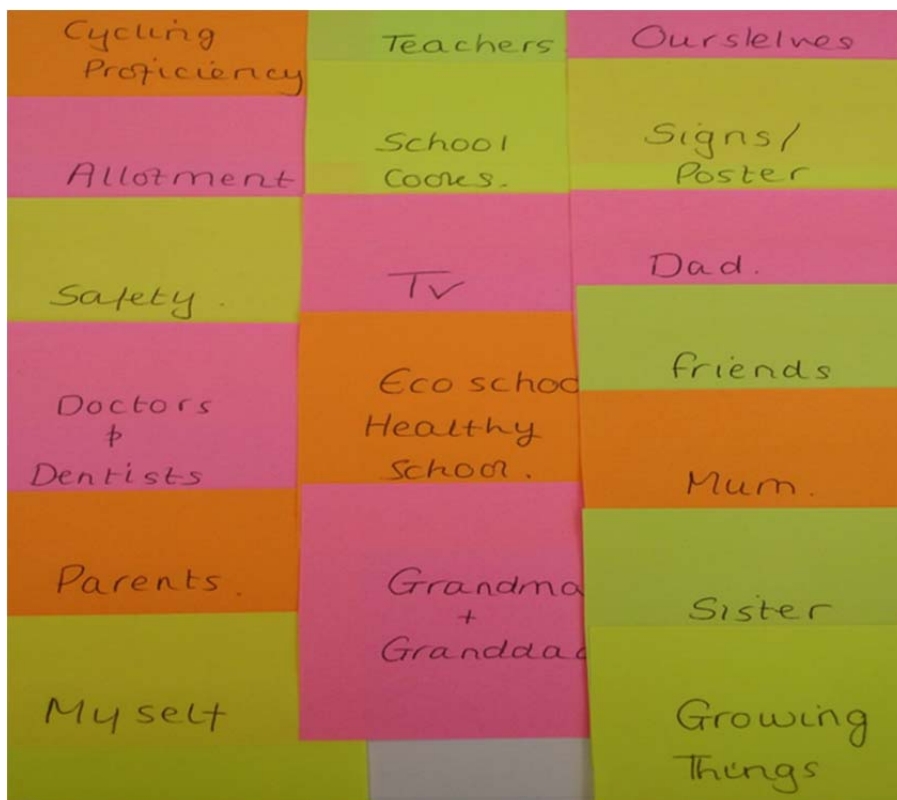 Cycling
Proficiency
Allotment
Safety.
Doctors
&
Dentists
Parents.
My self
Teachers.
School
Cooks.
Tv
Eco schoo
Healthy
School.
Grandma
+
Granddad
Oursleves
Signs/
Poster
Dad.
friends
Mum.
Sister
Growing
Things